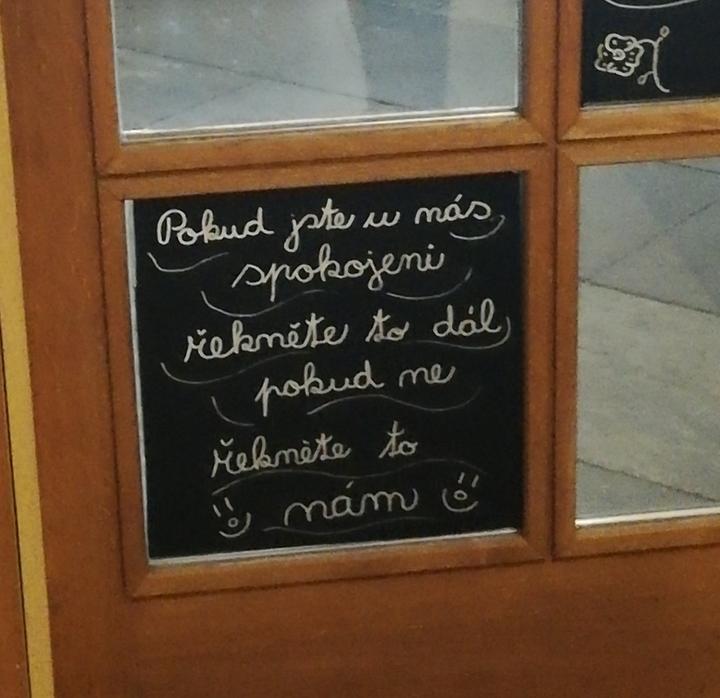 Pokud jste u nás
spokojeni
řekněte to dál
pokud ne
řekněte to
nám